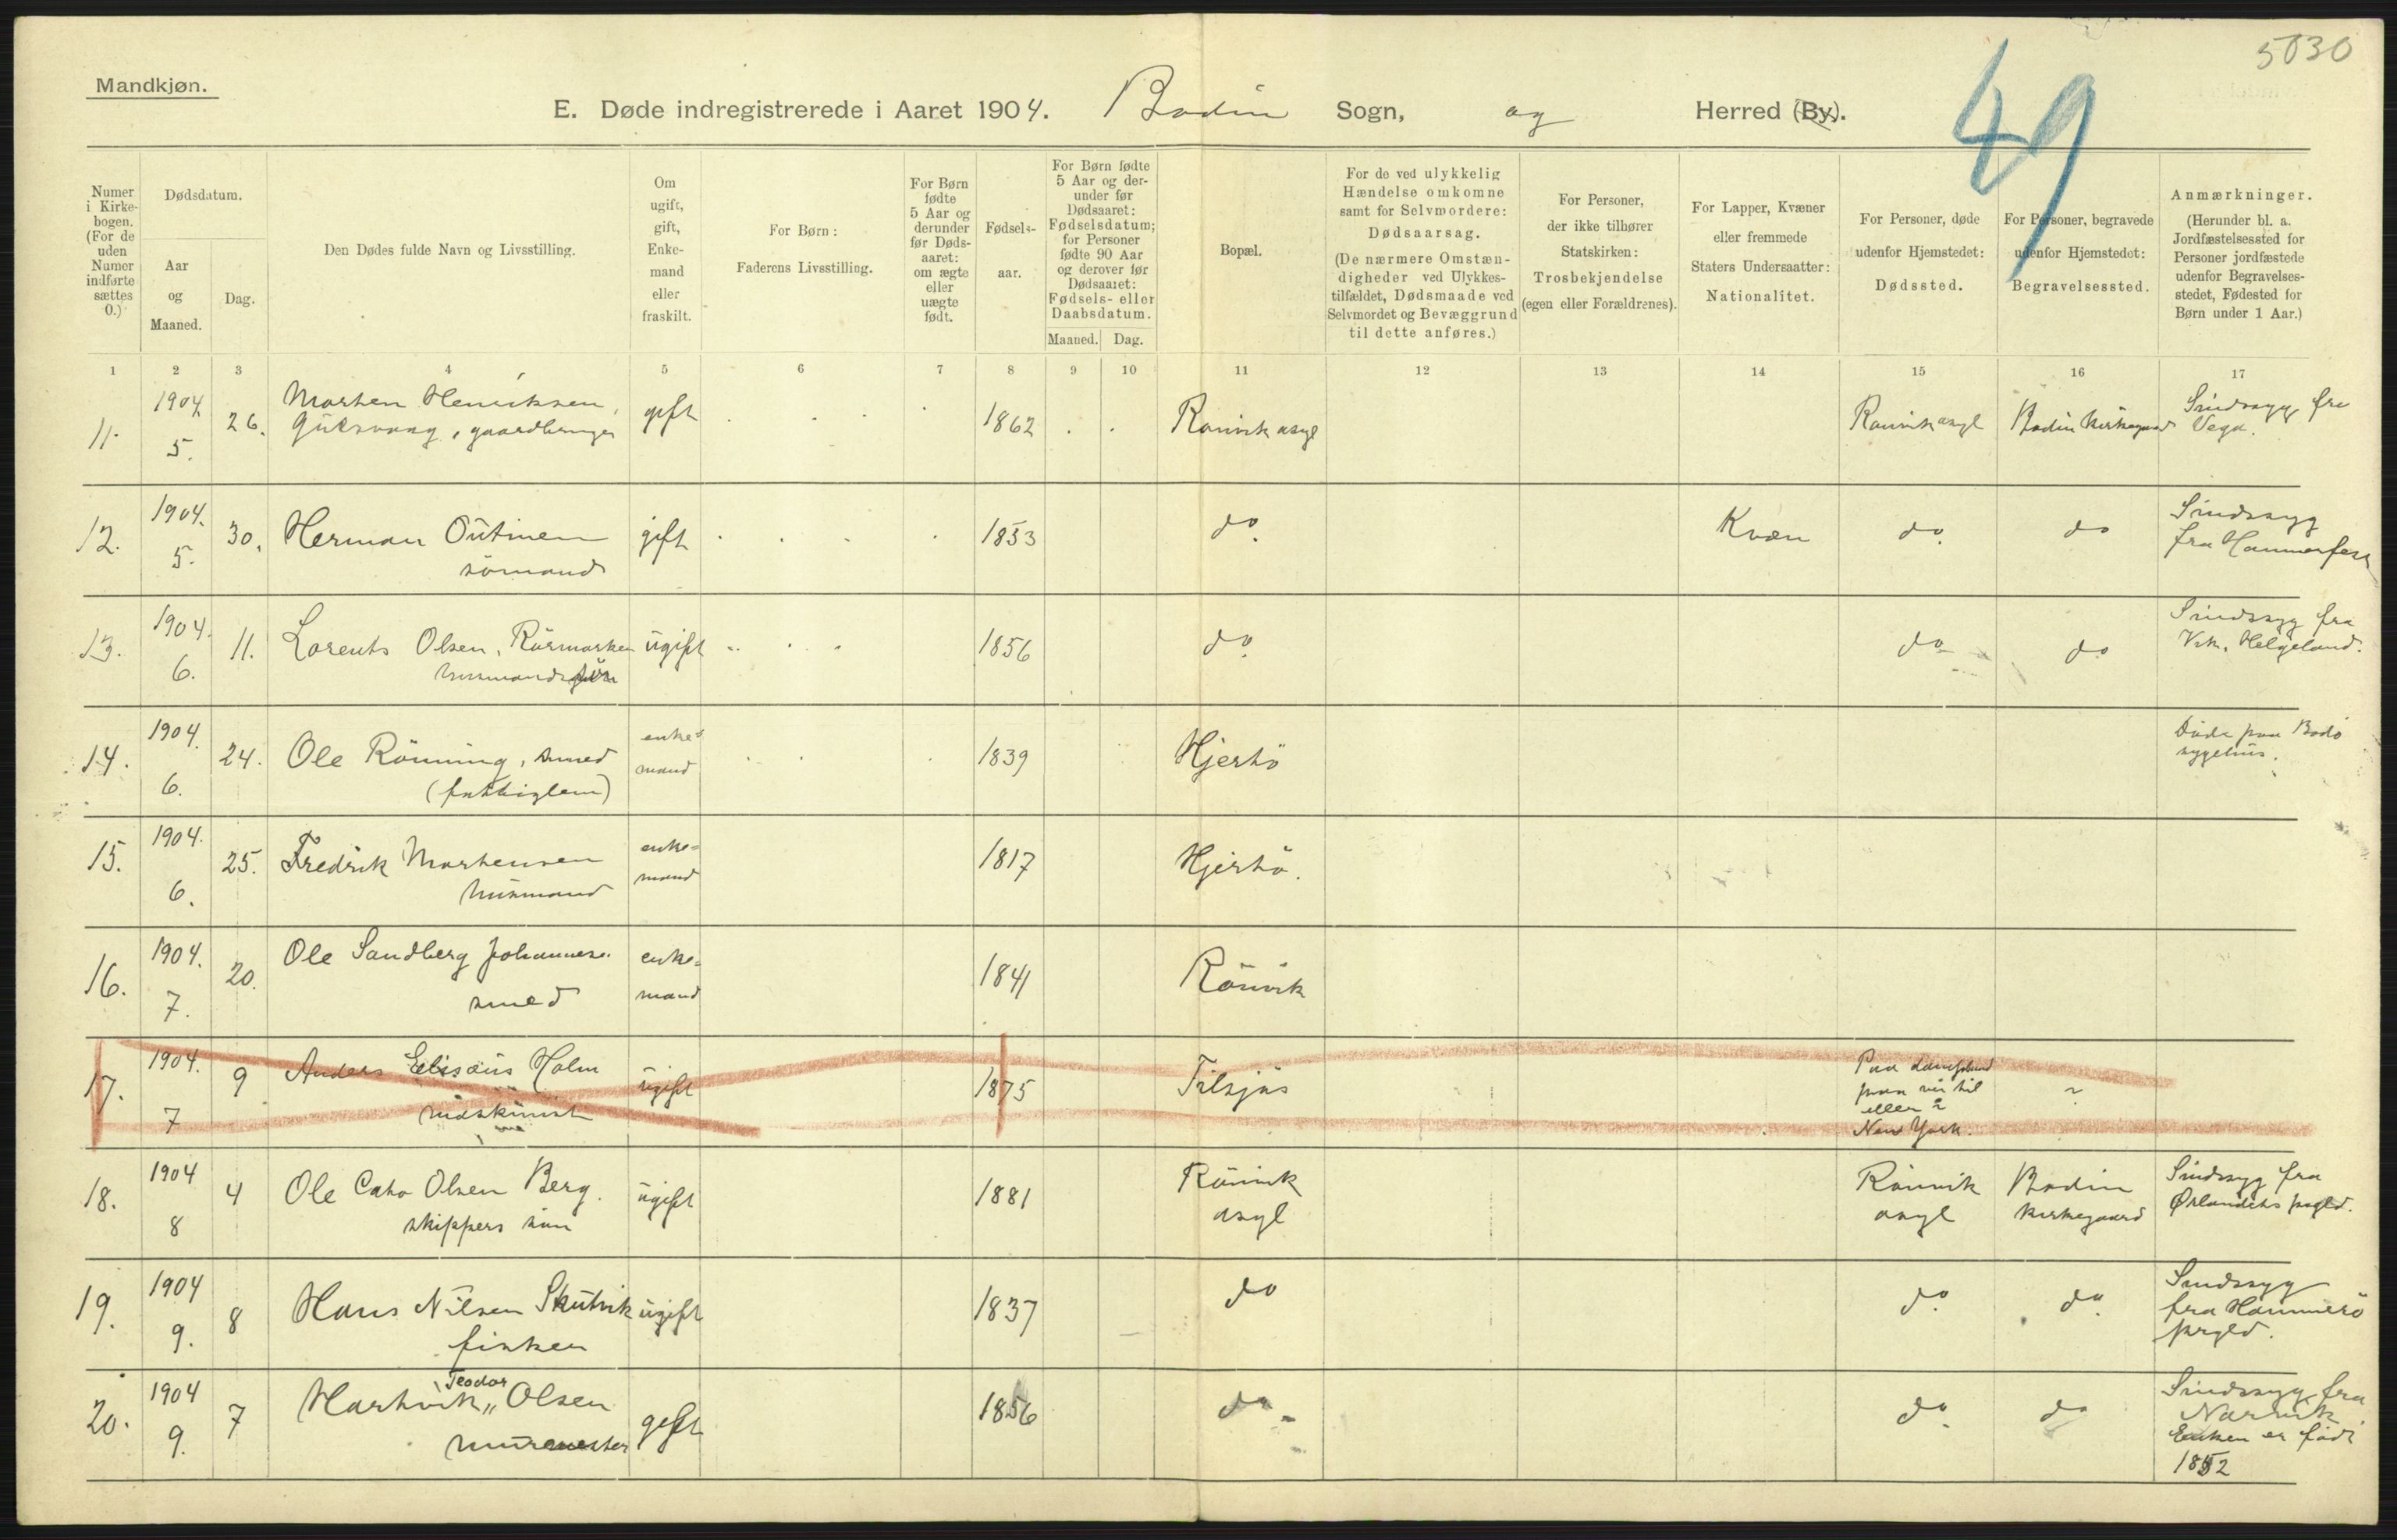 5030
49
Mandkjøn.
E. Døde indregistrerede i Aaret 1904. Bodin Sogn, og Herred (By).
Numer i Kirkebogen. (For de uden Numer indførte sættes 0.)
Dødsdatum.
Aar og Maaned.
Dag.
Den Dødes fulde Navn og Livsstilling.
Om ugift, gift, Enkemand eller fraskilt.
For Børn:
Faderens Livsstilling.
For Børn fødte 5 Aar og derunder før Dødsaaret: om ægte eller uægte født.
Fødselsaar.
For Børn fødte 5 Aar og derunder før Dødsaaret: Fødselsdatum; for Personer fødte 90 Aar og derover før Dødsaaret: Fødsels- eller Daabsdatum.
Maaned. Dag.
Bopæl.
For de ved ulykkelig Hændelse omkomne samt for Selvmordere: Dødsaarsag.
(De nærmere Omstændigheder ved Ulykkestilfældet, Dødsmaade ved Selvmordet og Bevæggrund til dette anføres.)
For Personer, der ikke tilhører Statskirken: Trosbekjendelse (egen eller Forældrenes).
For Lapper, Kvæner eller fremmede Staters Undersaatter: Nationalitet.
For Personer, døde udenfor Hjemstedet: Dødssted.
For Personer, begravede udenfor Hjemstedet: Begravelsessted.
Anmærkninger.
(Herunder bl. a. Jordfæstelsessted for Personer jordfæstede udenfor Begravelsesstedet, Fødested for Børn under 1 Aar.)
1 2 3 4 5 6 7 8 9 10 11 12 13 14 15 16 17
11. 1904 5. 26. Morten Henriksen, gaardbruger gift 1862 Rønvik asyl Rønvik asyl Bodin kirkegaard Sindssyg fra Vega.
12. 1904. 5. 30. Herman Outinen sømand gift 1853 do. Kvæn do. do Sindssyg fra Hammerfest
13. 1904. 6. 11. Lorents Olsen, Rørmarken husmandssøn ugift 1856 do. do do Sindssyg fra Vik, Helgeland.
14. 1904. 6. 24. Ole Rønning, smed (fattiglem) enkemand 1839 Hjertø Døde paa Bodø sygehus.
15. 1904. 6. 25. Fredrik Mortensen husmand enkemand 1817 Hjertø.
16. 1904. 7. 20. Ole Sandberg Johannes. smed enkemand 1841 Rønvik
17. 1904. 7 9 Anders Elisæus Holm maskinist ugift 1875 Paa dampskib paa vei til eller i New York.
18. 1904 8 4 Ole Cato Olsen Berg. skippers søn ugift 1881 Rønvik asyl Rønvik asyl Bodin kirkegaard Sindssyg fra Ørlandets prgld.
19. 1904 9. 8 Hans Nilsen Skutvik fisker ugift 1837 do do. do. Sindssyg fra Hammerø prgld.
20. 1904 9. 7 Hartvik Teodor Olsen murmester gift 1856 do do do Sindssyg fra Narvik. Enken er født 1852